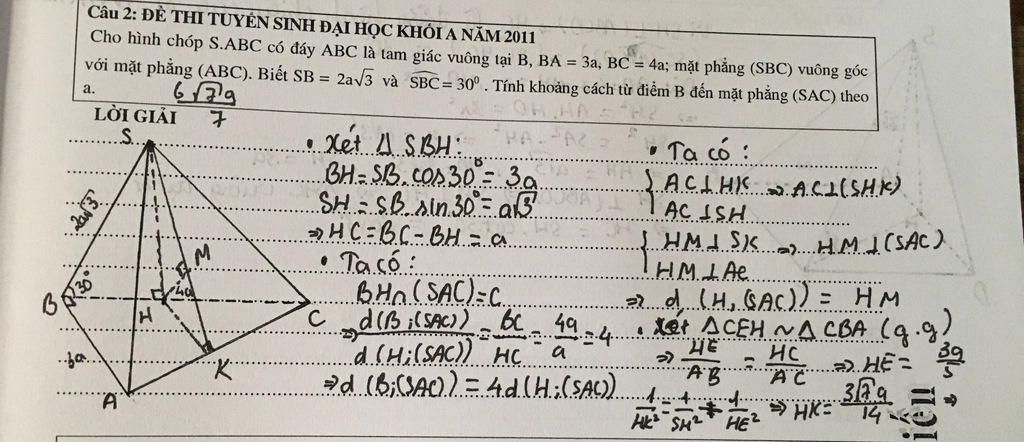 Câu 2: ĐỀ THI TUYỂN SINH ĐẠI HỌC KHỐI A NĂM 2011
Cho hình chóp S.ABC có đáy ABC là tam giác vuông tại B, BA = 3a, BC = 4a; mặt phẳng (SBC) vuông góc
với mặt phẳng (ABC). Biết SB = 2a√3 và SBC = 30⁰ . Tính khoảng cách từ điểm B đến mặt phẳng (SAC) theo
a.
6√7a
7
LỜI GIẢI
S
2a√3
M
B
30°
4a
H
C
3a
K
A
• Xét Δ SBH:
BH = SB.cos30° = 3a
SH = SB.sin30° = a√3
⇒ HC = BC - BH = a
• Ta có:
BH∩(SAC) = C
⇒ d(B;(SAC)) / d(H;(SAC)) = BC / HC = 4a / a = 4
⇒ d(B;(SAC)) = 4d(H;(SAC))
• Ta có:
{ AC⊥HK ⇒ AC⊥(SHK)
AC⊥SH
{ HM⊥SK ⇒ HM⊥(SAC)
HM⊥AC
⇒ d (H,(SAC)) = HM
• Xét ΔCEH ~ Δ CBA (g.g)
⇒ HE / AB = HC / AC ⇒ HE = 3a / 5
1 / HK² = 1 / SH² + 1 / HE² ⇒ HK = 3√7a / 14 ⇒
iến